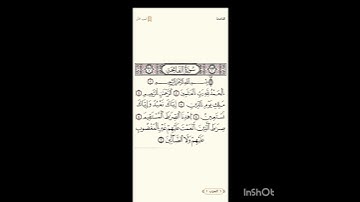 الفاتحة
سورة الفاتحة
بسم الله الرحمن الرحيم ١
الحمد لله رب العلمين ٢ الرحمن الرحيم ٣
ملك يوم الدين ٤ إياك نعبد وإياك
نستعين ٥ اهدنا الصرط المستقيم ٦
صرط الذين أنعمت عليهم غير المغضوب
عليهم ولا الضالين ٧
InShOt